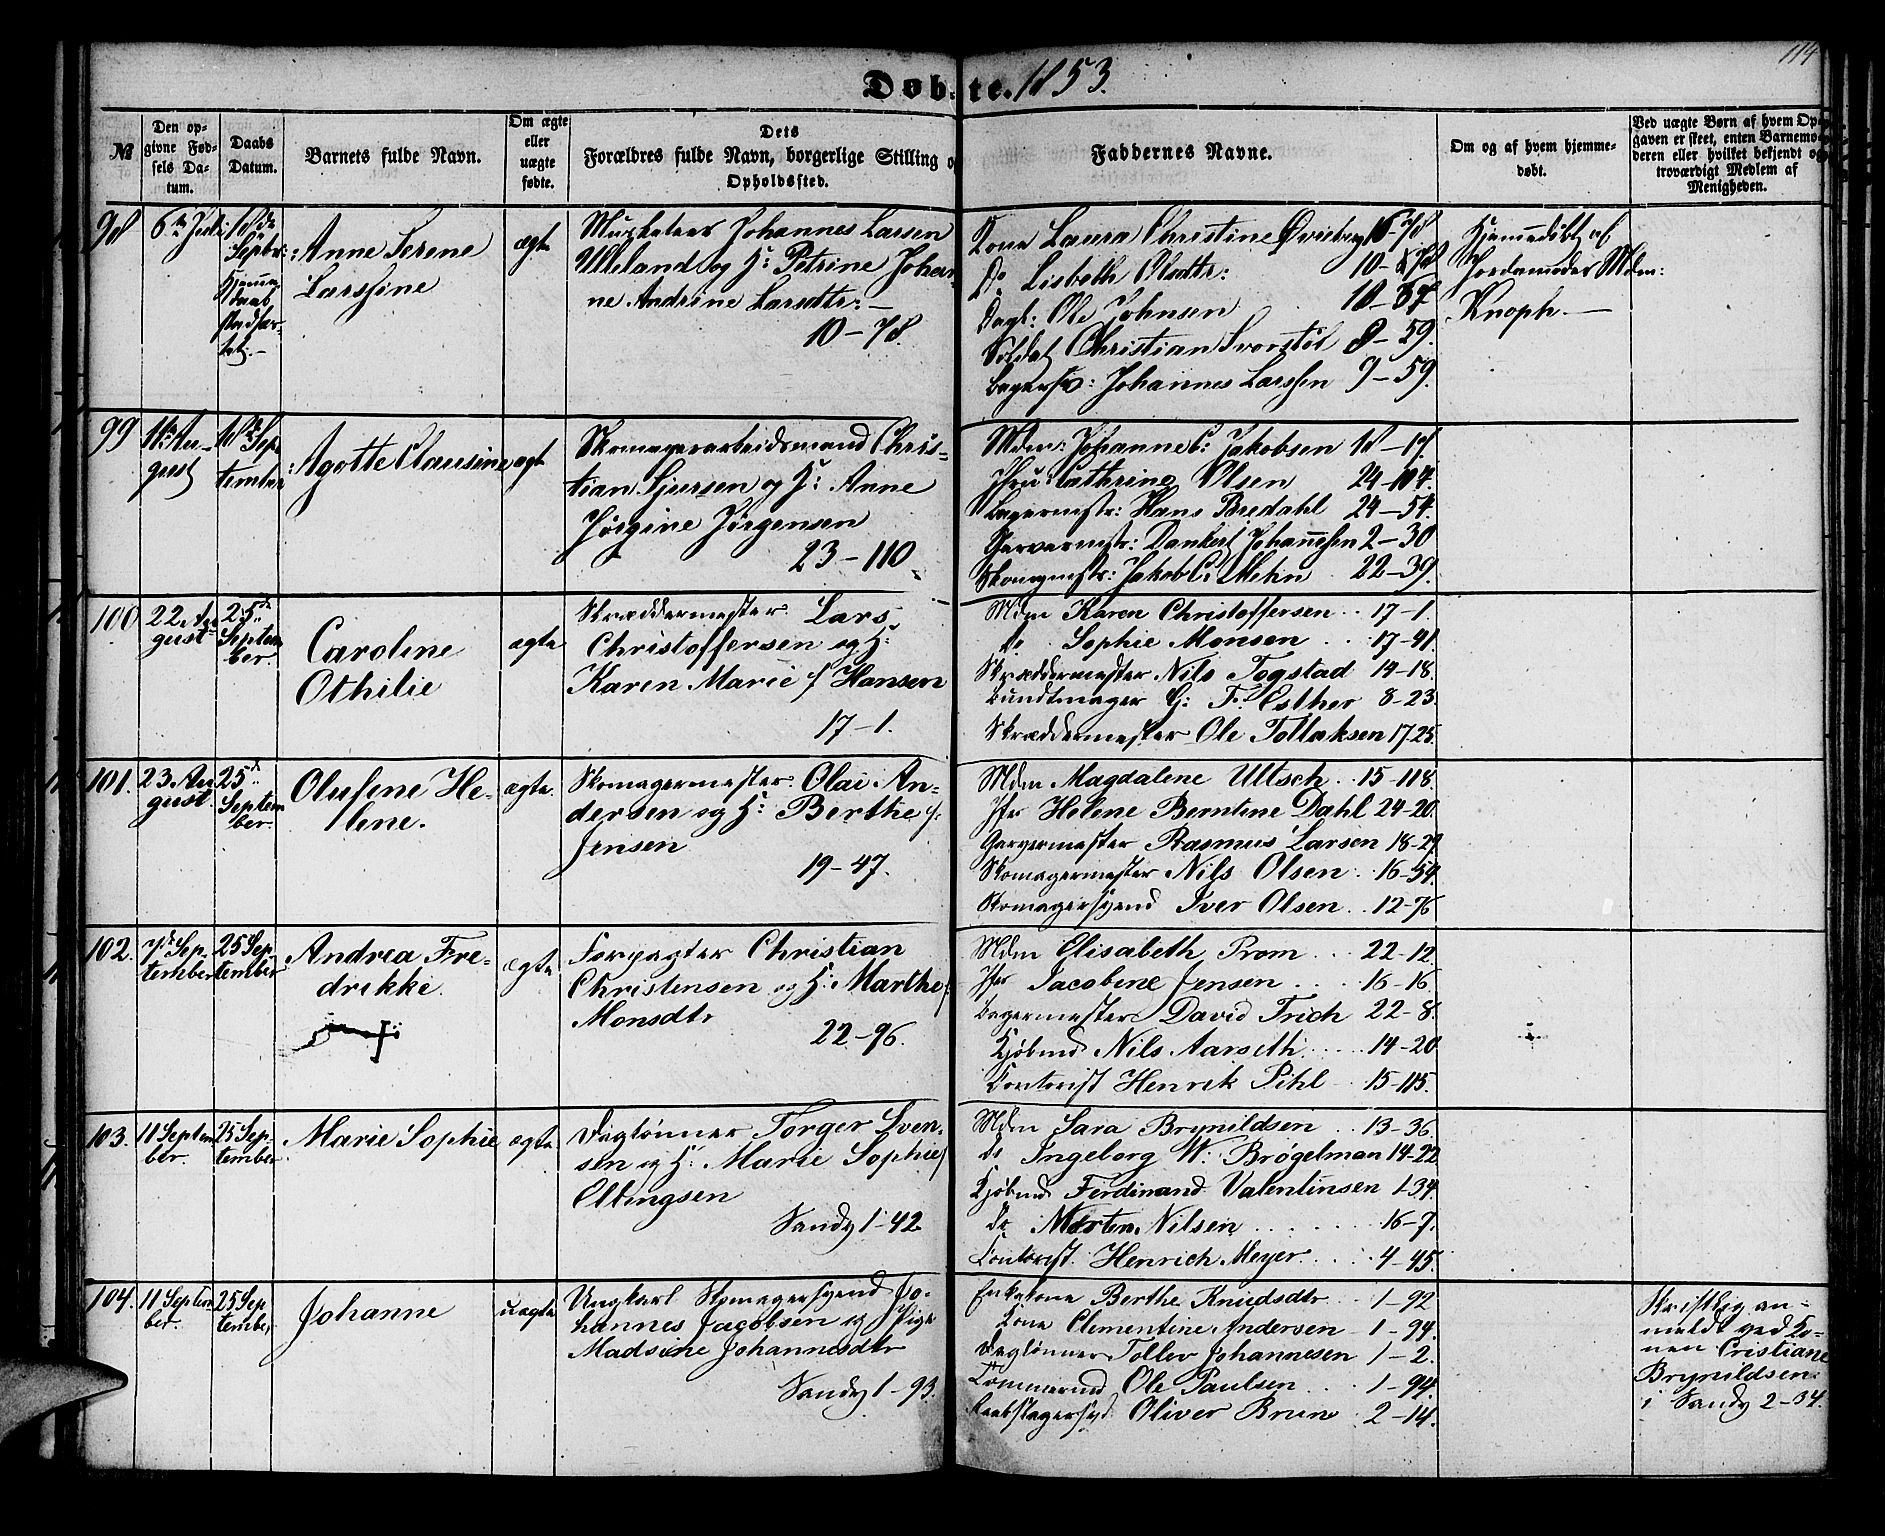 114
Døbte. 1853.
№
Den op-
givne Fød-
sels Da-
tum.
Daabs
Datum.
Barnets fulde Navn.
Om ægte
eller
uægte
fødte.
Dets
Forældres fulde Navn, borgerlige Stilling og
Opholdssted.
Faddernes Navne.
Om og af hvem hjemme-
døbt.
Ved uægte Børn af hvem Op-
gaven er skeet, enten Barnemo-
deren eller hvilket bekjendt og
troværdigt Medlem af
Menigheden.
98
6te Juli
18de
Septbr:
Hjemme
daab
stadfæs-
tet.-
Anne Serene
Larssine
ægte
Musketeer Johannes Larsen
Ulleland og H: Petrine Johan-
ne Andrine Larsdtr: —
10-78.
Kone Laura Christine 10-78
Do Lisbeth Olsdtr: 10-78
Dagl: Ole Johnsen 10-37
Soldat Christian Svorstøl 8-59.
Bagersv: Johannes Larssen 9-59.
Hjemmedøbt af
Jordemoder Mdm:
Knoph. —
99
11te Au-
gust
18de Sep
tember
Agotte Clausine
ægte
Skomagerarbeidsmand Chris-
tian Sjursen og H: Anne
Jørgine Jørgensen
23-110.
Mdm: Johanne C: Jakobsen 18-17.
Jfru Cathrine Olsen 24-104.
Bagermstr: Hans Bredahl 24-54.
Garvermstr: Dankert Johannesen 2-30
Skomgmstr: Jakob C: Mehn 22-39.
100
22. Au
gust
25de
Septem
ber.
Caroline
Othilie
ægte
Skræddermester Lars
Christoffersen og H:
Karen Marie f Hansen
17-1.
Mdm Karen Christoffersen .. 17-1
do Sophie Monsen . . . 17-41.
Skræddermester Nils Togstad 14-18.
Bundtmager G: F. Esther 8-23.
Skræddermester Ole Tollaksen 17 25.
101.
23. Au
gust.
25de
Septem
ber.
Olufene He-
lene.
ægte.
Skomagermester Olai An-
dersen og H: Berthe f.
Jensen
19-47.
Mdm Magdalene Ultsch. . . 15-118.
Jfr Helene Berntine Dahl 24-20.
Garvermester Rasmus Larsen 18-27
Skomagermester Nils Olsen. . 16-54.
Skomagersvend Iver Olsen. . 12-76
102.
7de Sep-
tember
25 Sep-
tember
Andrea Fre-
drikke.
ægte
Forpagter Christian
Christensen og H: Marthe f
Monsdtr
22-96.
Mdm Elisabeth Prom . . . 22-12.
Jfr Jacobine Jensen . . . . 16-16.
Bagermester David Frich 22-8.
Kjøbmd Nils Aarseth . . . . . 14-20
Contorist Henrik Pihl . . 15-115.
103.
11 Septem
ber.
25 Sep-
tember
Marie Sophie
ægte
Daglønner Torger Sven-
sen og H: Marie Sophie f
Ellingsen
Sandv 1-42
Mdm Sara Brynildsen . . 13-36.
do Ingeborg W: Brøgelman 14-22
Kjøbmd Ferdinand Valentinsen 1-34.
do Morten Nilsen . . . . . . . 16-7.
Contorist. Henrich Meyer. . . . 4-45.
104.
11 Septem
ber.
25 Sep
tember
Johanne
uægte
Ungkarl Skomagersvend Jo-
hannes Jacobsen og Pige
Madsine Johannesdtr
Sandv 1-93.
Enkekone Berthe Knudsdtr . . . 1-92
Kone Clementine Andersen — 1-94.
Daglønner Tollev Johannesen 1-2.
Tømmermd Ole Paulsen . . . 1-94.
Reebslagersvd Oliver Brun . 2-14.
Skriftlig an-
meldt ved Ko-
nen Cristiane
Brynildsen.
i Sandv 2-34.